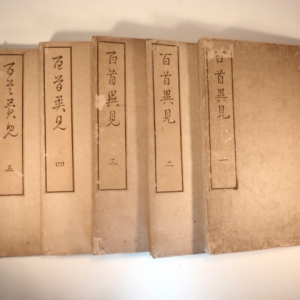 百首異見
一
百首異見
二
百首異見
三
百首異見
四
百首異見
五